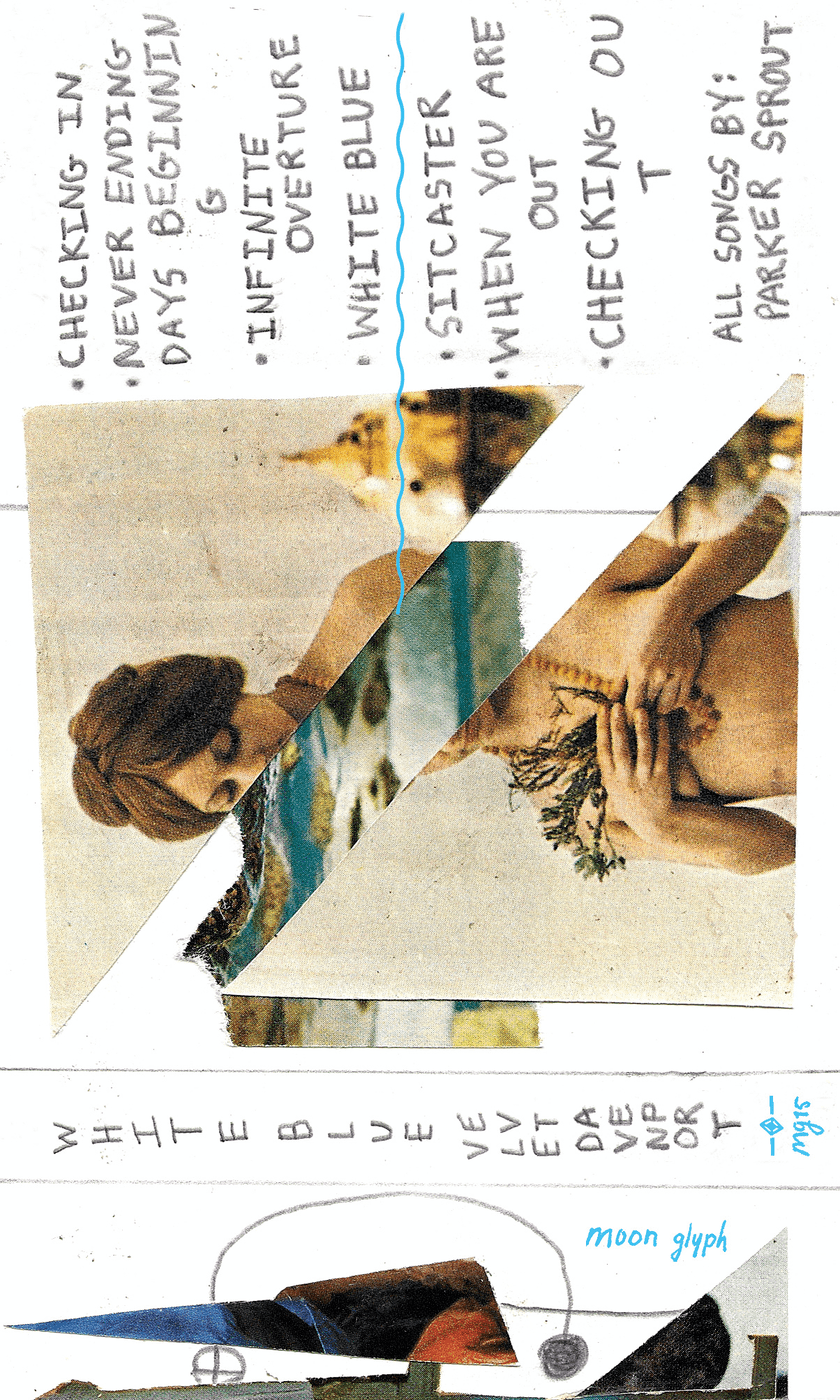 • CHECKING IN
• NEVER ENDING
DAYS BEGINNIN
G
• INFINITE
OVERTURE
• WHITE BLUE
• SITCASTER
• WHEN YOU ARE
OUT
• CHECKING OU
T
ALL SONGS BY:
PARKER SPROUT
WHITE BLUE VELVET DAVENPORT
mg51s
moon glyph